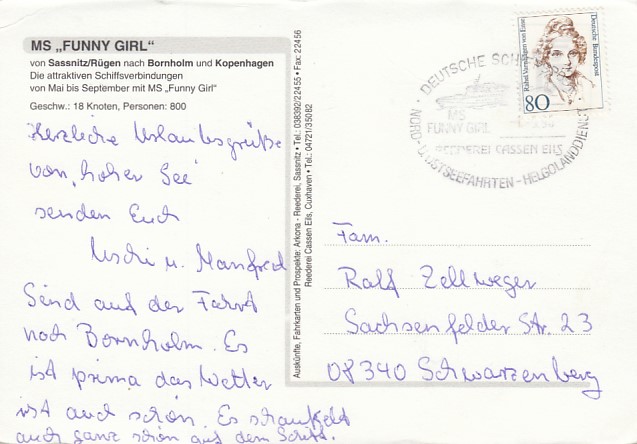 MS „FUNNY GIRL“
von Sassnitz/Rügen nach Bornholm und Kopenhagen
Die attraktiven Schiffsverbindungen
von Mai bis September mit MS „Funny Girl“
Geschw.: 18 Knoten, Personen: 800
Herzliche Urlaubsgrüße
von „hoher See“
senden Euch
Uschi u. Manfred
Sind auf der Fahrt
nach Bornholm. Es
ist prima das Wetter
ist auch schön. Es schaukelt
auch ganz schön auf dem Schiff.
Auskünfte, Fahrkarten und Prospekte: Arkona - Reederei, Sassnitz • Tel.: 038392/22455 • Fax: 22456
Reederei Cassen Eils, Cuxhaven • Tel.: 04721/35082
DEUTSCHE
MS
FUNNY GIRL
REEDEREI CASSEN EILS
NORD- U. OSTSEEFAHRTEN - HELGOLANDDIENST
Rahel Varnhagen von Ense
Deutsche Bundespost
80
Fam.
Ralf Zellweger
Sachsenfelder Str. 23
08340 Schwarzenberg